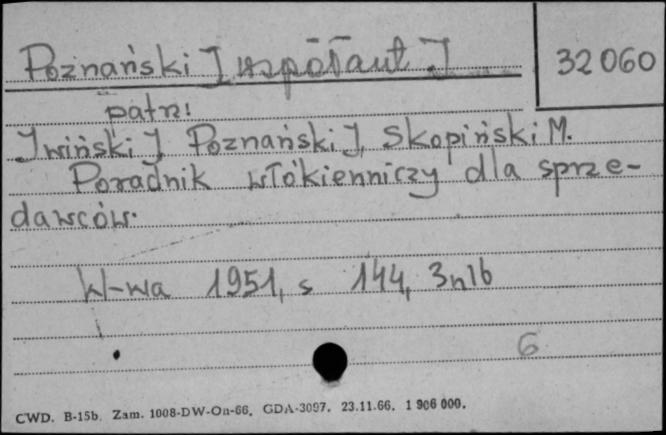 Poznański J współaut. J
32060
patrz:
Iwiński J Poznański J, Skopiński M.
Poradnik włókienniczy dla sprze-
dawców.
W-wa 1951, s 144, 3nlb
6
CWD. B-15b. Zam. 1008-DW-On-66. GDA-3097. 23.11.66. 1 906 000.